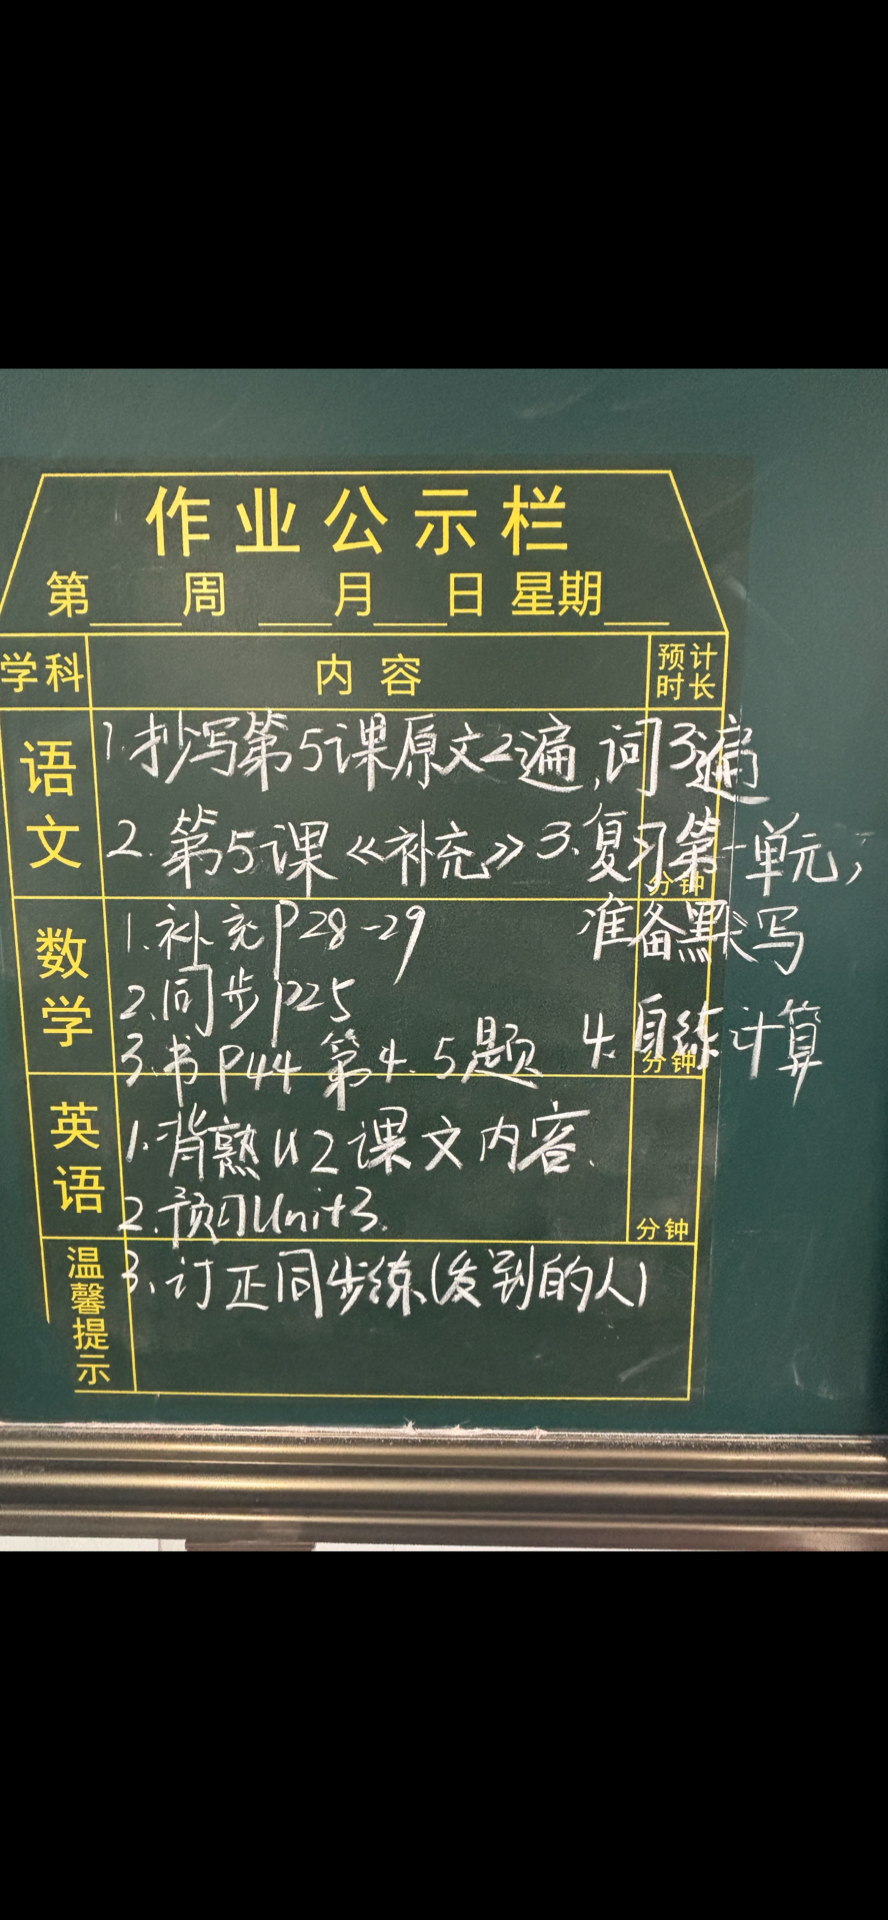 作业公示栏
第____周 ____月____日 星期____
学科 内容 预计时长
语文
1.抄写第5课原文2遍,词3遍
2.第5课《补充》3.复习第一单元,
准备默写
分钟
数学
1.补充P28-29
2.同步P25
3.书P44 第4.5题 4.自练计算
分钟
英语
1.背熟U2课文内容.
2.预习Unit3.
分钟
温馨提示
3.订正同步练(发到的人)